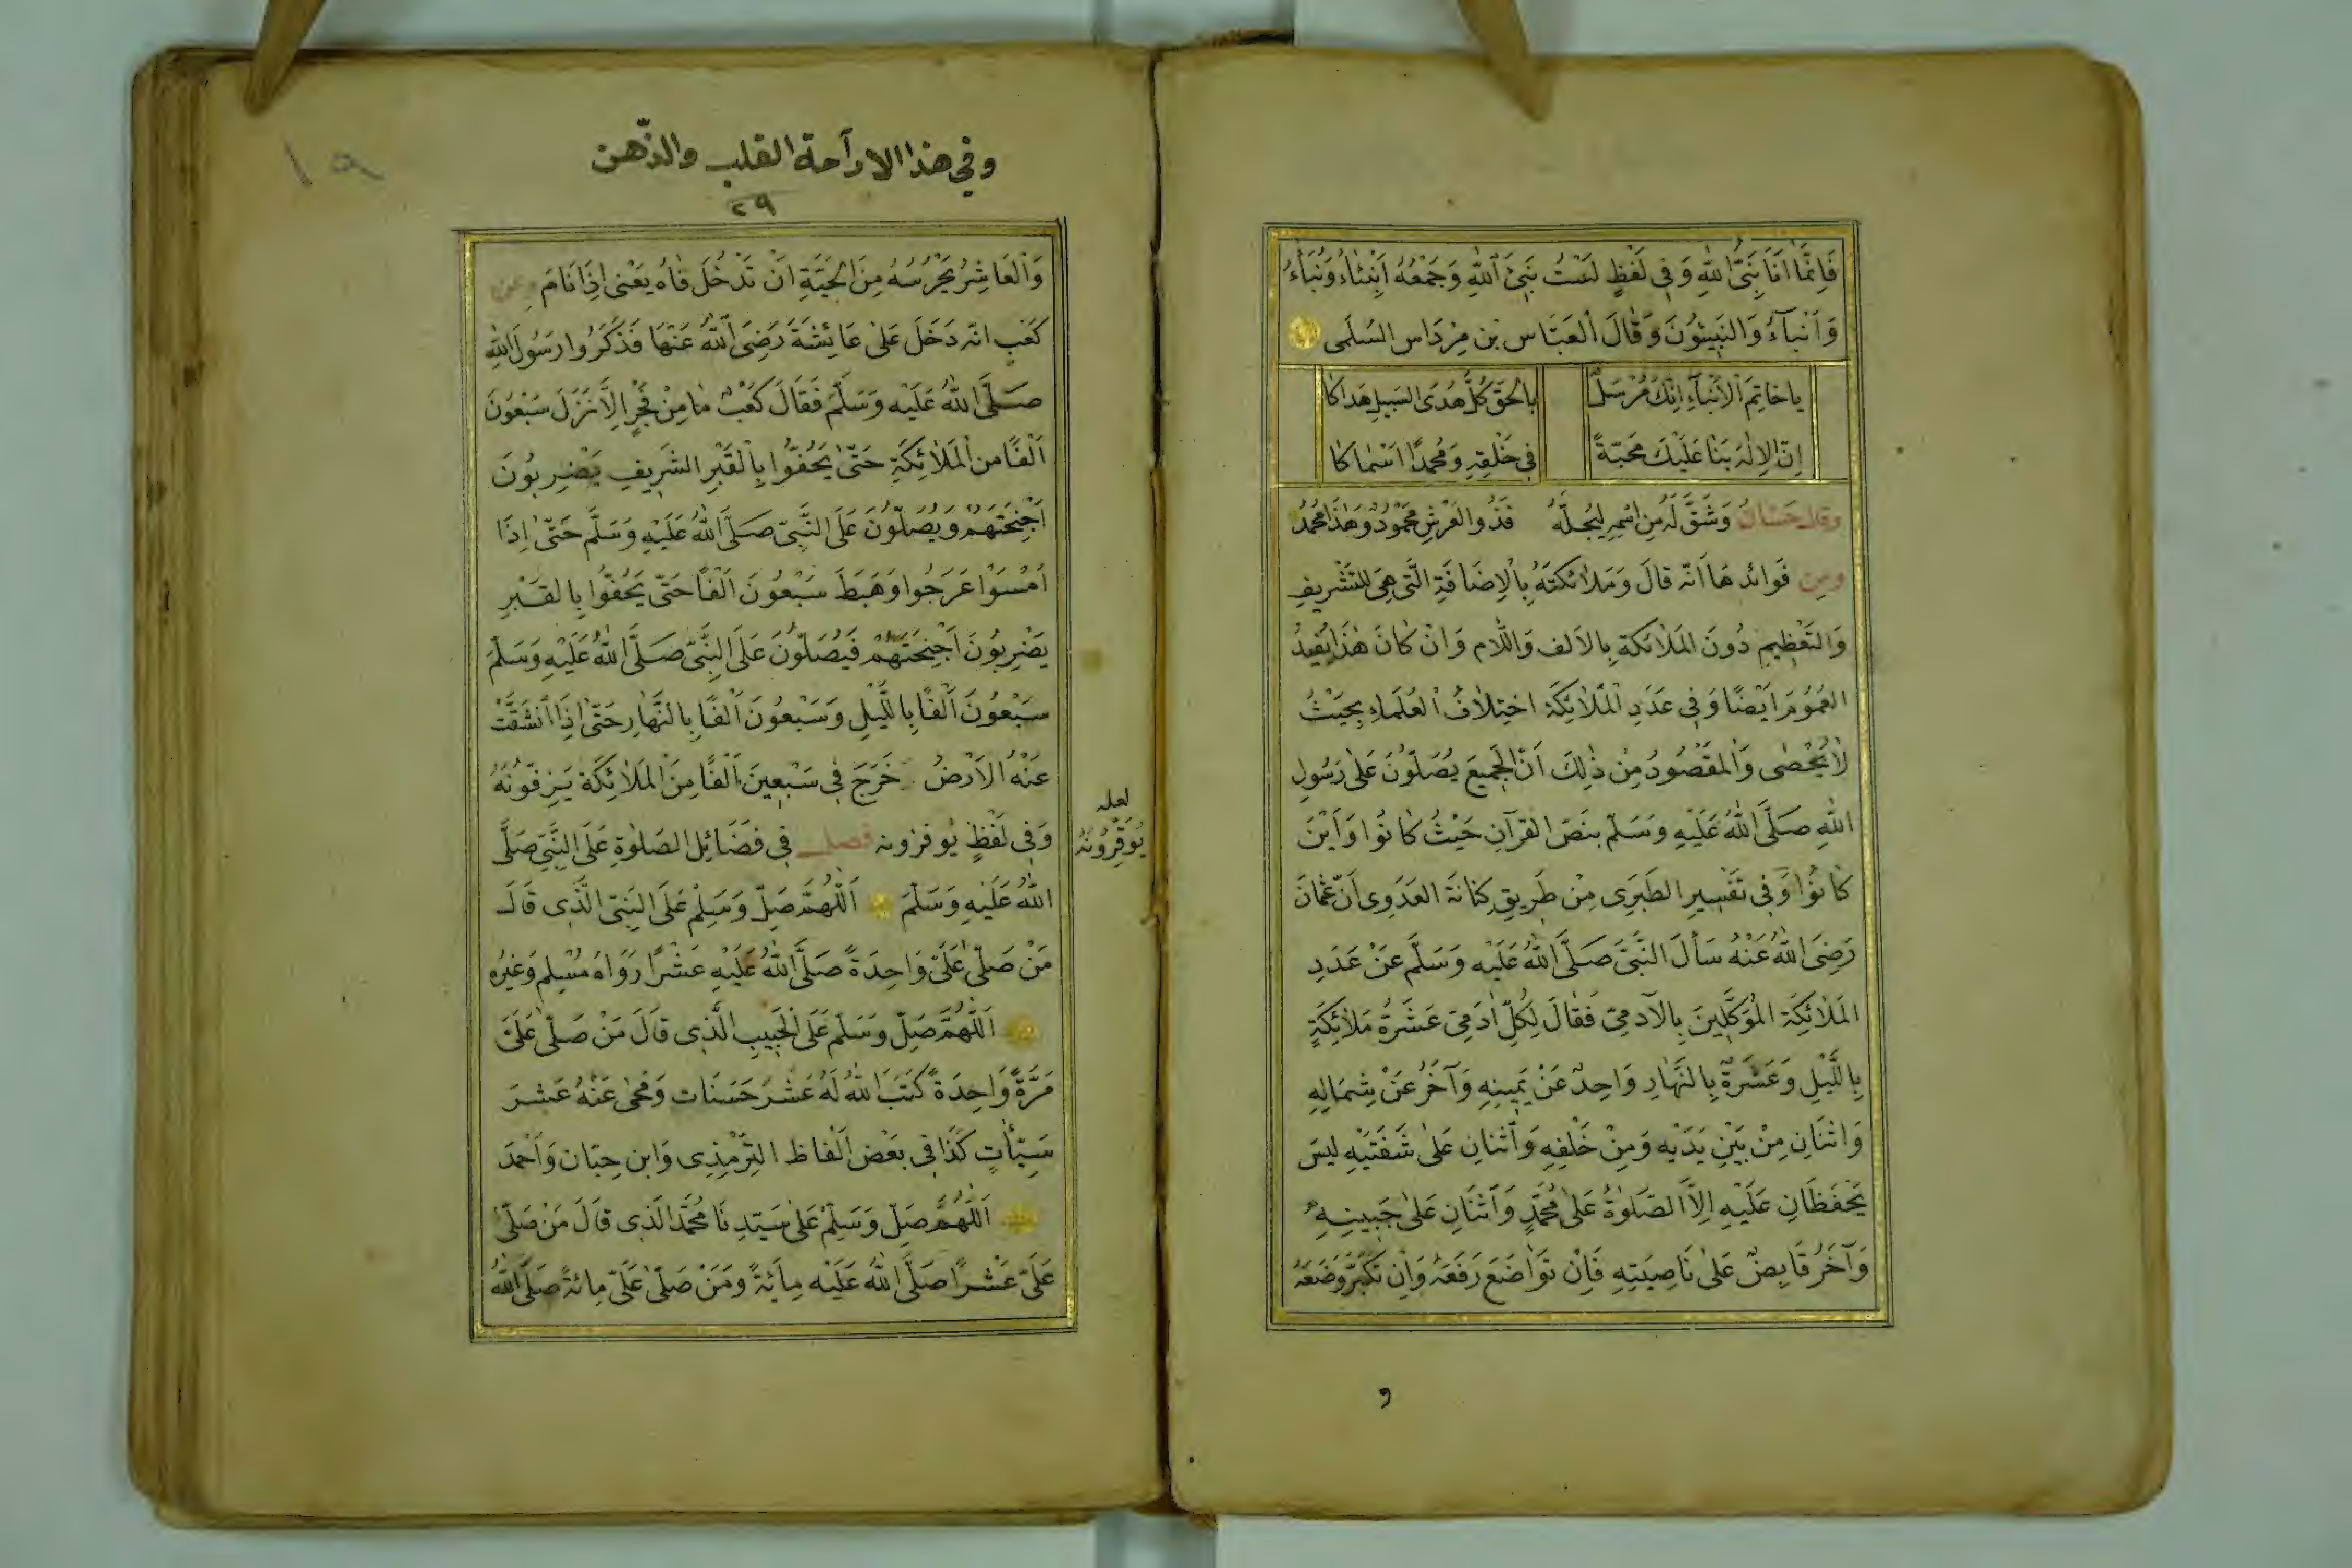 فَاِنَّمَا اَنَا نَبِىُّ اللهِ وَفِى لَفْظٍ لَسْتُ نَبِىْءَ اللهِ وَجَمْعُهُ اَنْبِئَاءُ وَنُبَاَءُ
وَاَنْبَآءُ وَالنَّبِيئوُنَ وَقَالَ الْعَبَّاس بْن مِرْدَاس السُّلَمى
ياخَاتِمَ الاَنْبَآءِ اِنَّكَ مُرْسَلٌ بِالْحَقِّ كُلُّ هُدَى السَّبِيلِ هَدَاكَا
اِنّ الاِلٰهَ بَنَا عَلَيْكَ مَحَبَّةً فِى خَلْقِهِ وَمُحَمَّدًا اَسْمَاكَا
وقال حَسّانُ وَشَقَّ لَهُ مِنِ اسْمِهِ لِيُجِلَّهُ فَذُو الْعَرْشِ مَحْمُودٌ وَهٰذَا مُحَمَّدُ
ومِن فَوائدِهَا اَنّه قَالَ وَمَلَائكَتَهُ بِالاِضَافَةِ الَّتى هِىَ لِلتَّشْرِيفِ
وَالتَّعْظِيمِ دُونَ المَلَائكَة بِالاَلف وَاللَّام وَاِنْ كَانَ هٰذَا يُفِيدُ
العُمُومَ اَيْضًا وَفِى عَدَدِ الْمَلَائِكَة اخْتِلَافُ الْعُلَمَاءِ بِحَيْثُ
لَايُحْصٰى وَالْمَقْصُودُ مِنْ ذٰلِكَ اَنّ الْجَمِيعَ يُصَلّوُنَ عَلٰى رَسُولِ
اللهِ صَلَّى اللهُ عَلَيْهِ وَسَلّمَ بنَصّ الْقُرْآنِ حَيْثُ كَانُوا وَاَيْنَ
كَانُوا وَفِى تَفْسِيرِ الطَبَرِى مِنْ طَرِيقِ كِنَانَة العَدَوِى اَنّ عُثْمَانَ
رَضِىَ اللهُ عَنْهُ سَأَلَ النَّبِىَّ صَلَّى اللهُ عَلَيْهِ وَسَلَّمَ عَنْ عَدَدِ
المَلَائِكَة المُوَكَّلِينَ بِالآدمِىّ فَقَالَ لِكُلّ آدَمِىّ عَشَرَةُ مَلَائِكَةٍ
بِاللَّيْلِ وَعَشَرَةٌ بِالنَّهَارِ وَاحِدٌ عَنْ يَمِينِهِ وَآخَرُ عَنْ شِمَالِهِ
وَاثْنَانِ مِنْ بَيْنِ يَدَيْهِ وَمِنْ خَلْفِهِ وَاثْنَانِ عَلٰى شَفَتَيْهِ لَيْسَ
يَحْفَظَانِ عَلَيْهِ اِلَّا الصَّلٰوةَ عَلٰى مُحَمَّدٍ وَاثْنَانِ عَلٰى جَبِينِهِ
وَآخَرُ قَابِضٌ عَلٰى نَاصِيَتِهِ فَاِنْ تَوَاضَعَ رَفَعَهُ وَاِن تَكَبَّرَ وَضَعَهُ
و
وفي هذا الا راحة القلب والذّهن
٢٩
١٩
وَالْعَاشِرُ يَحْرُسُهُ مِنَ الْحَيَّةِ اَنْ تَدْخُلَ فَاهُ يَعْنى اِذَا نَامَ وعن
كَعْبٍ انّه دَخَلَ عَلٰى عَائِشَةَ رَضِىَ اللهُ عَنْهَا فَذَكَرُوا رَسُولَ اللهِ
صَلَّى اللهُ عَلَيْهِ وَسَلَّمَ فَقَالَ كَعْبٌ مَا مِنْ فَجْرٍ اِلَّا نَزَلَ سَبْعُونَ
اَلْفًا من الْمَلَائِكَةِ حَتّٰى يَحُفُّوا بِالْقَبْرِ الشَرِيفِ يَضْرِبُونَ
اَجْنِحَتَهُمْ وَيُصَلّوُنَ عَلَى النَّبِىّ صَلَّى اللهُ عَلَيْهِ وَسَلَّمَ حَتّٰى اِذَا
اَمْسَوْا عَرَجُوا وَهَبَطَ سَبْعُونَ اَلْفًا حَتّى يَحُفّوُا بِالْقَبْرِ
يَضْرِبُونَ اَجْنِحَتَهُمْ فَيُصَلّوُنَ عَلَى النَّبِىّ صَلَّى اللهُ عَلَيْهِ وَسَلّمَ
سَبْعُونَ اَلْفًا بِاللَّيْلِ وَسَبْعُونَ اَلْفًا بِالنَّهَارِ حَتّٰى اِذَا اْنْشَقَّتْ
عَنْهُ الاَرْضُ خَرَجَ فِى سَبْعِينَ اَلْفًا مِنَ الْمَلَائِكَة يَزِفّوُنَهُ
وَفِى لَفْظٍ يُوقرونه فصل فِى فَضَائِلِ الصَلٰوةِ عَلَى النَّبِىّ صَلَّى
لعله
يُوَقِّرُونَهُ
اللهُ عَلَيْهِ وَسَلّمَ اَللّٰهُمَّ صَلِّ وَسَلِّمْ عَلَى النَبِىّ الَّذِى قَالَ
مَنْ صَلّٰى عَلَىَّ وَاحِدَةً صَلَّى اللهُ عَلَيْهِ عَشْرًا رَوَاهُ مُسْلِم وَغَيْرُهُ
اَللّٰهُمَّ صَلِّ وَسَلّمْ عَلَى الْحَبِيبِ الَّذِى قَالَ مَنْ صَلّٰى عَلَىَّ
مَرَّةً وَاحِدَةً كَتَبَ اللهُ لَهُ عَشْرَ حَسَنَات وَمَحٰى عَنْهُ عَشْرَ
سَيِّئَاتٍ كَذَا فِى بَعْضِ اَلْفَاظ التِّرْمِذِى وَابنِ حِبّان وَاَحْمَدَ
اَللّٰهُمَّ صَلِّ وَسَلِّمْ عَلٰى سَيّدِنَا مُحَمَّدٍ الَّذِى قَالَ مَنْ صَلّٰى
عَلَىّ عَشْرًا صَلَّى اللهُ عَلَيْهِ مِائةً وَمَنْ صَلّٰى عَلَىّ مِائةً صَلَّى اللهُ